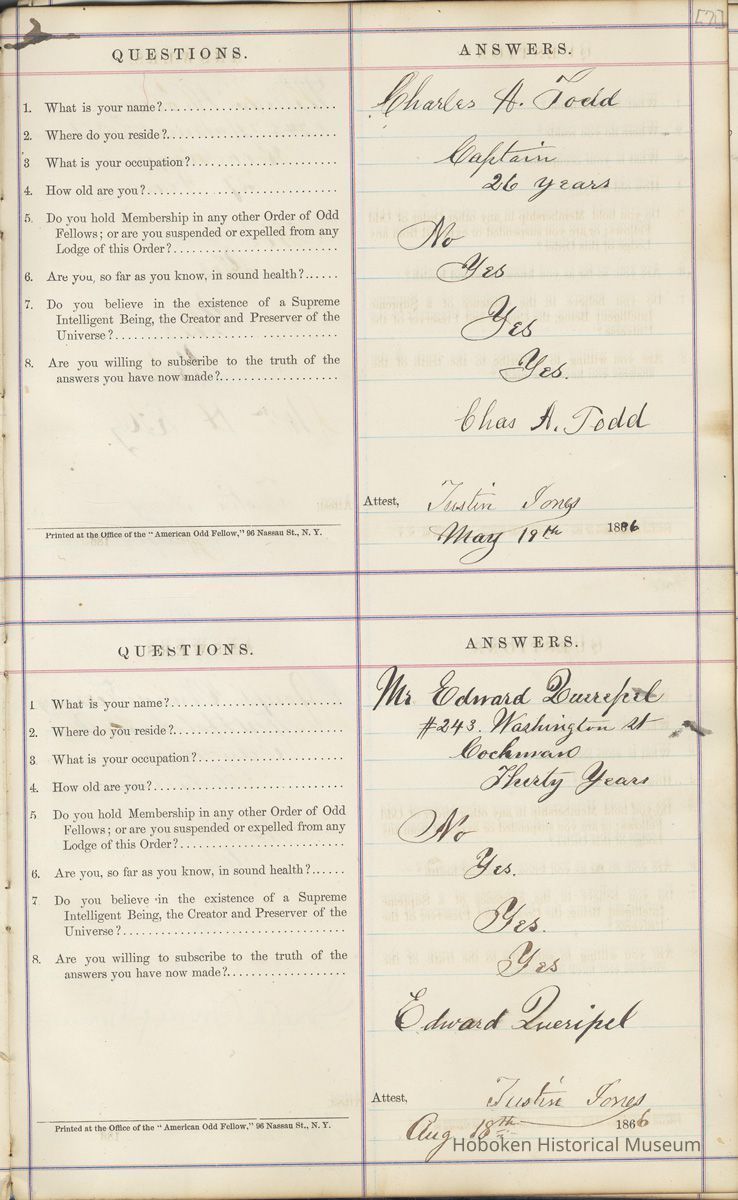 [7]
QUESTIONS. ANSWERS.
1. What is your name?........................... Charles A. Todd
2. Where do you reside?...........................
3 What is your occupation?........................... Captain
4. How old are you?........................... 26 years
5. Do you hold Membership in any other Order of Odd
Fellows; or are you suspended or expelled from any
Lodge of this Order?........................... No
6. Are you, so far as you know, in sound health?...... Yes
7. Do you believe in the existence of a Supreme
Intelligent Being, the Creator and Preserver of the
Universe?........................... Yes
8. Are you willing to subscribe to the truth of the
answers you have now made?........................... Yes.
Chas A. Todd
Attest, Justin Jones
May 19th 1866
Printed at the Office of the "American Odd Fellow," 96 Nassau St., N. Y.
QUESTIONS. ANSWERS.
1 What is your name?........................... Mr Edward Querepel
2. Where do you reside?........................... #243. Washington st
3 What is your occupation?........................... Cochman
4. How old are you?........................... Therty Years
5 Do you hold Membership in any other Order of Odd
Fellows; or are you suspended or expelled from any
Lodge of this Order?........................... No
6. Are you, so far as you know, in sound health?...... Yes.
7 Do you believe in the existence of a Supreme
Intelligent Being, the Creator and Preserver of the
Universe?........................... Yes.
8. Are you willing to subscribe to the truth of the
answers you have now made?........................... Yes
Edward Queripel
Attest, Justin Jones
Aug 18th 1866
Printed at the Office of the "American Odd Fellow," 96 Nassau St., N. Y.
Hoboken Historical Museum